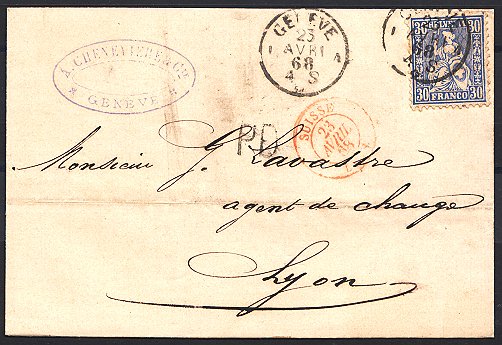 A. CHENEVIÈRE & Cie
GENÈVE
GENÈVE
23
AVRI
68
4 S
30 HELVETIA 30
30 FRANCO 30
PD
SUISSE
23
AVRIL
Monsieur J. Lavastre
agent de change
Lyon